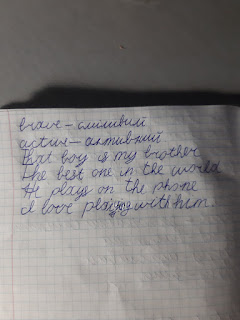 brave – сміливий
active – активний
That boy is my brother
The best one in the world
He plays on the phone
I love playing with him.